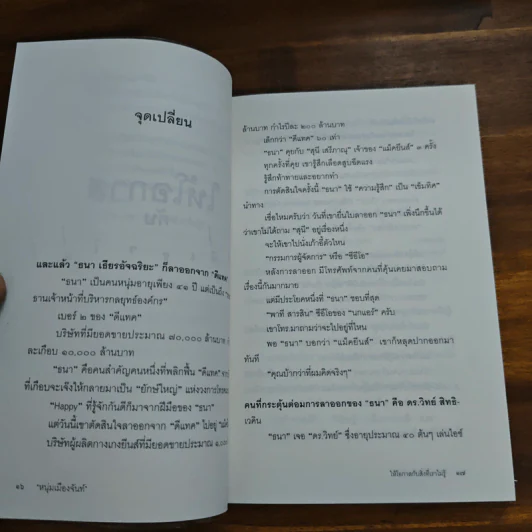 จุดเปลี่ยน
และแล้ว "ธนา เธียรอัจฉริยะ" ก็ลาออกจาก "ดีแทค"
"ธนา" เป็นคนหนุ่มอายุเพียง ๔๑ ปี แต่เป็นถึง
ธานเจ้าหน้าที่บริหารกลยุทธ์องค์กร"
เบอร์ ๒ ของ "ดีแทค"
บริษัทที่มียอดขายประมาณ ๗๐,๐๐๐ ล้านบาท
ละเกือบ ๑๐,๐๐๐ ล้านบาท
"ธนา" คือคนสำคัญคนหนึ่งที่พลิกฟื้น "ดีแทค"
ที่เกือบจะเจ๊งให้กลายมาเป็น "ยักษ์ใหญ่" แห่งวงการ
"Happy" ที่รู้จักกันดีก็มาจากฝีมือของ "ธนา"
แต่วันนี้เขาตัดสินใจลาออกจาก "ดีแทค" ไปอยู่
บริษัทผู้ผลิตกางเกงยีนส์ที่มียอดขายประมาณ
๑๖ "หนุ่มเมืองจันท์"
ล้านบาท กำไรปีละ ๒๐๐ ล้านบาท
เล็กกว่า "ดีแทค" ๖๐ เท่า
"ธนา" คุยกับ "สุนี เสรีภาณุ" เจ้าของ "แม็คยีนส์" ๓ ครั้ง
ทุกครั้งที่คุย เขารู้สึกเลือดสูบฉีดแรง
รู้สึกท้าทายและอยากทำ
การตัดสินใจครั้งนี้ "ธนา" ใช้ "ความรู้สึก" เป็น "เข็มทิศ"
นำทาง
เชื่อไหมครับว่า วันที่เขายื่นใบลาออก "ธนา" เพิ่งนึกขึ้นได้
ว่าเขาไม่ได้ถาม "สุนี" อยู่เรื่องหนึ่ง
จะให้เขาไปนั่งเก้าอี้ตัวไหน
"กรรมการผู้จัดการ" หรือ "ซีอีโอ"
หลังการลาออก มีโทรศัพท์จากคนที่คุ้นเคยมาสอบถาม
เรื่องนี้กันมากมาย
แต่มีประโยคหนึ่งที่ "ธนา" ชอบที่สุด
"พาที สารสิน" ซีอีโอของ "นกแอร์" ครับ
เขาโทร.มาถามว่าจะไปอยู่ที่ไหน
พอ "ธนา" บอกว่า "แม็คยีนส์" เขาก็หลุดปากออกมา
ทันที
"คุณบ้ากว่าที่ผมคิดจริงๆ"
คนที่กระตุ้นต่อมการลาออกของ "ธนา" คือ ดร.วิทย์ สิทธิ-
เวคิน
"ธนา" เจอ "ดร.วิทย์" ซึ่งอายุประมาณ ๔๐ ต้นๆ เล่นไอซ์
ให้โอกาสกับสิ่งที่เราไม่รู้ ๑๗